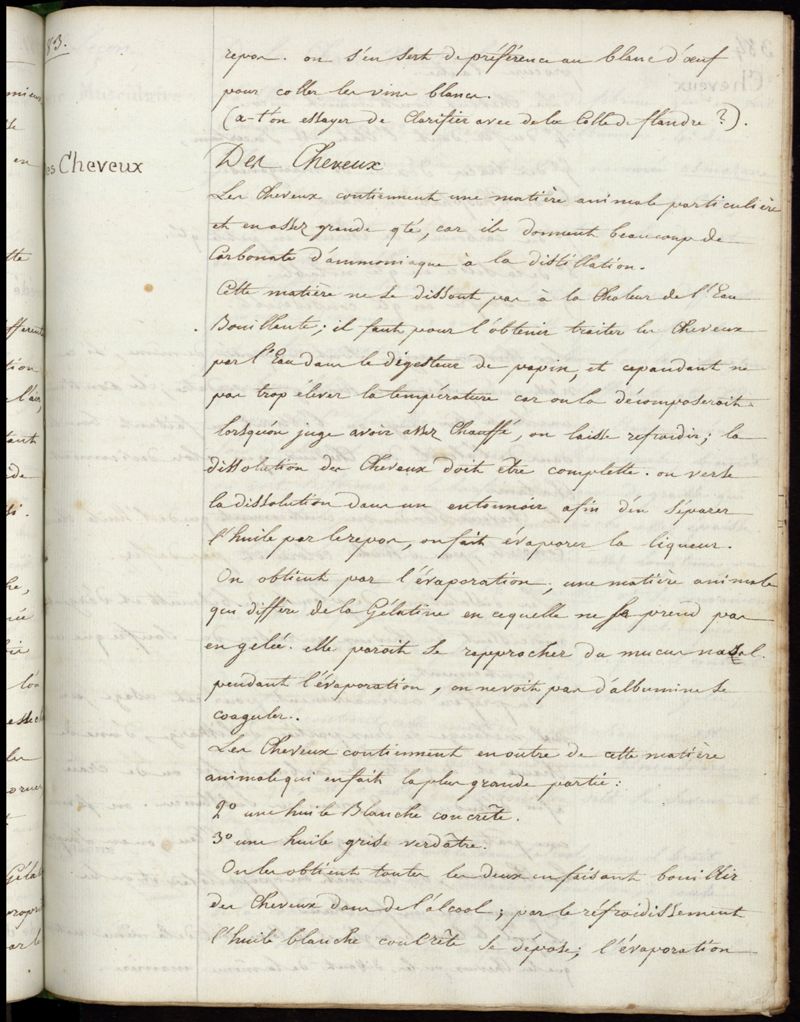 83.
repos. on s'en sert de préférence au blanc d'œuf
pour coller les vins blancs.
(a-t'on essayer de clarifier avec de la Colle de flandre ?).
Des Cheveux
Des Cheveux
Les Cheveux contiennent une matière animale particulière
et en assez grande qté, car ils donnent beaucoup de
Carbonate d'ammoniaque à la distillation.
Cette matière ne se dissout pas à la Chaleur de l'Eau
Bouillante; il faut pour l'obtenir traiter les Cheveux
par l'Eau dans le digesteur de papin, et cepandant ne
pas trop élever la température car on la décomposerait.
lorsqu'on juge avoir assez Chauffé, on laisse refroidir; la
dissolution des Cheveux doit être complette. on verse
la dissolution dans un entonnoir afin d'en séparer
l'huile par le repos, on fait évaporer la liqueur.
On obtient par l'évaporation, une matière animale
qui diffère de la Gélatine en cequelle ne se prend pas
en gelée. elle paroit se rapprocher du mucus nasal.
pendant l'évaporation, on ne voit pas d'albumine se
coaguler.
Les Cheveux contiennent en outre de cette matière
animale qui en fait la plus grande partie :
2° une huile Blanche concrête.
3° une huile grise verdâtre.
On les obtient toutes les deux en faisant bouillir
des Cheveux dans de l'alcool; par le réfroidissement
l'huile blanche concrête se dépose; l'évaporation